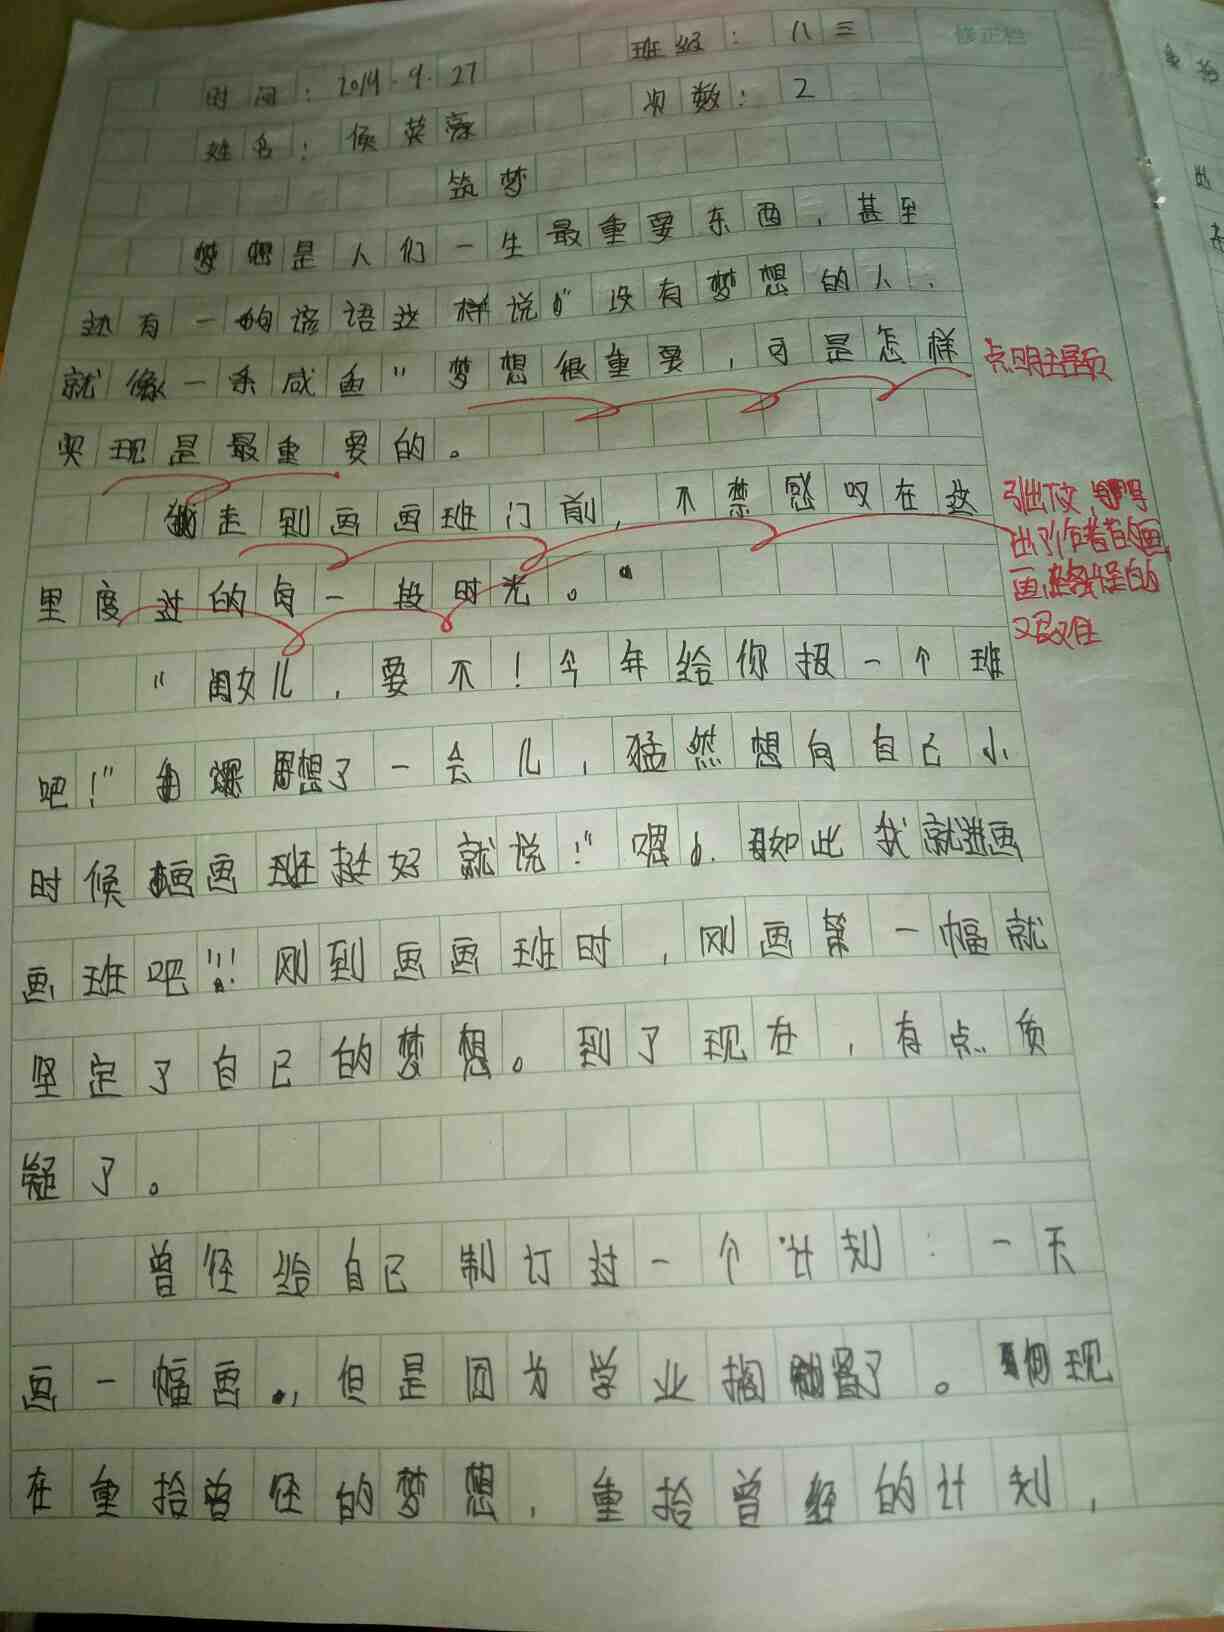 修正栏
班经：八三
时间：2019.9.27
次数：2
姓名：侯荣
筑梦
梦想是人们一生最重要东西，甚至
还有一句谚语这样说："没有梦想的人，
就像一条咸鱼"梦想很重要，可是怎样
点明主题
实现是最重要的。
我走到画画班门前，不禁感叹在这
引出下文，引导
里度过的每一段时光。
出了作者昔日的画
画
艰难
"闺女儿，要不！今年给你报一个班
吧！"我思想了一会儿，猛然想向自己小
时候画画班挺好就说！"嗯，如此我就进画
画班吧!!!刚到画画班时，刚画第一幅就
坚定了自己的梦想。到了现在，有点质
疑了。
曾经给自己制订过一个计划：一天
画一幅画，但是因为学业搁置了。现
在重拾曾经的梦想，重拾曾经的计划，